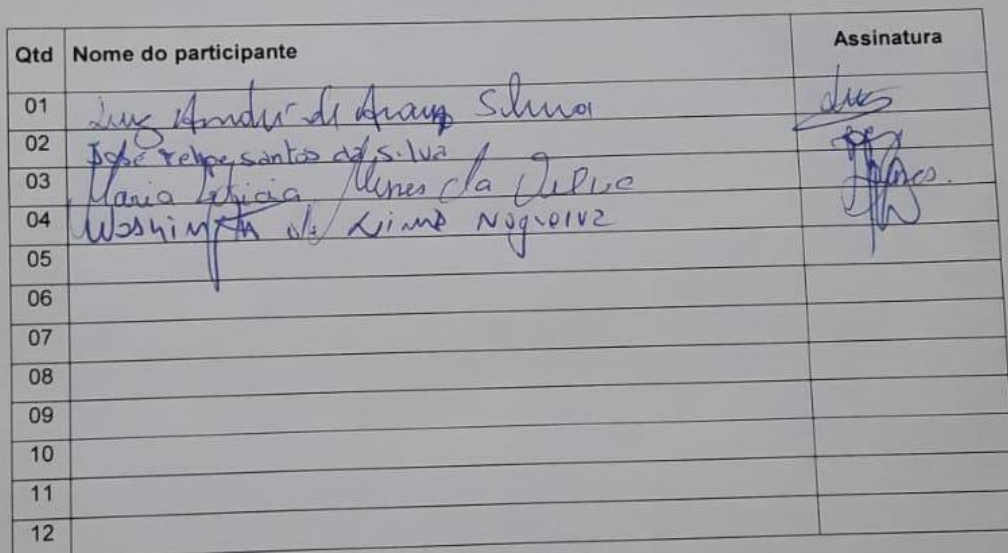 Qtd Nome do participante Assinatura
01 Luiz André de Araujo Silva Luiz
02 José Felipe santos da silva
03 Maria Leticia Nunes da Silva
04 Washington de Lima Nogueira
05
06
07
08
09
10
11
12